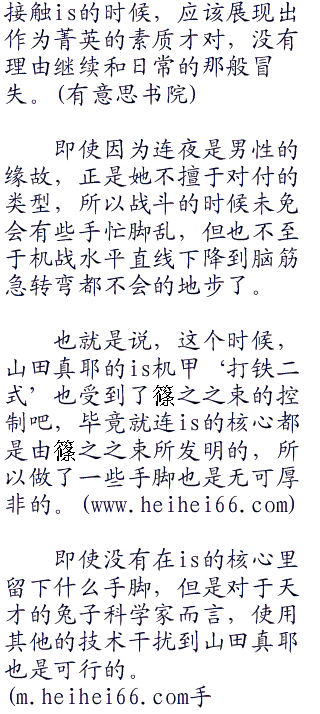 接触is的时候，应该展现出
作为菁英的素质才对，没有
理由继续和日常的那般冒
失。(有意思书院)
即使因为连夜是男性的
缘故，正是她不擅于对付的
类型，所以战斗的时候未免
会有些手忙脚乱，但也不至
于机战水平直线下降到脑筋
急转弯都不会的地步了。
也就是说，这个时候，
山田真耶的is机甲‘打铁二
式’也受到了篠之之束的控
制吧，毕竟就连is的核心都
是由篠之之束所发明的，所
以做了一些手脚也是无可厚
非的。(www.heihei66.com)
即使没有在is的核心里
留下什么手脚，但是对于天
才的兔子科学家而言，使用
其他的技术干扰到山田真耶
也是可行的。
(m.heihei66.com手